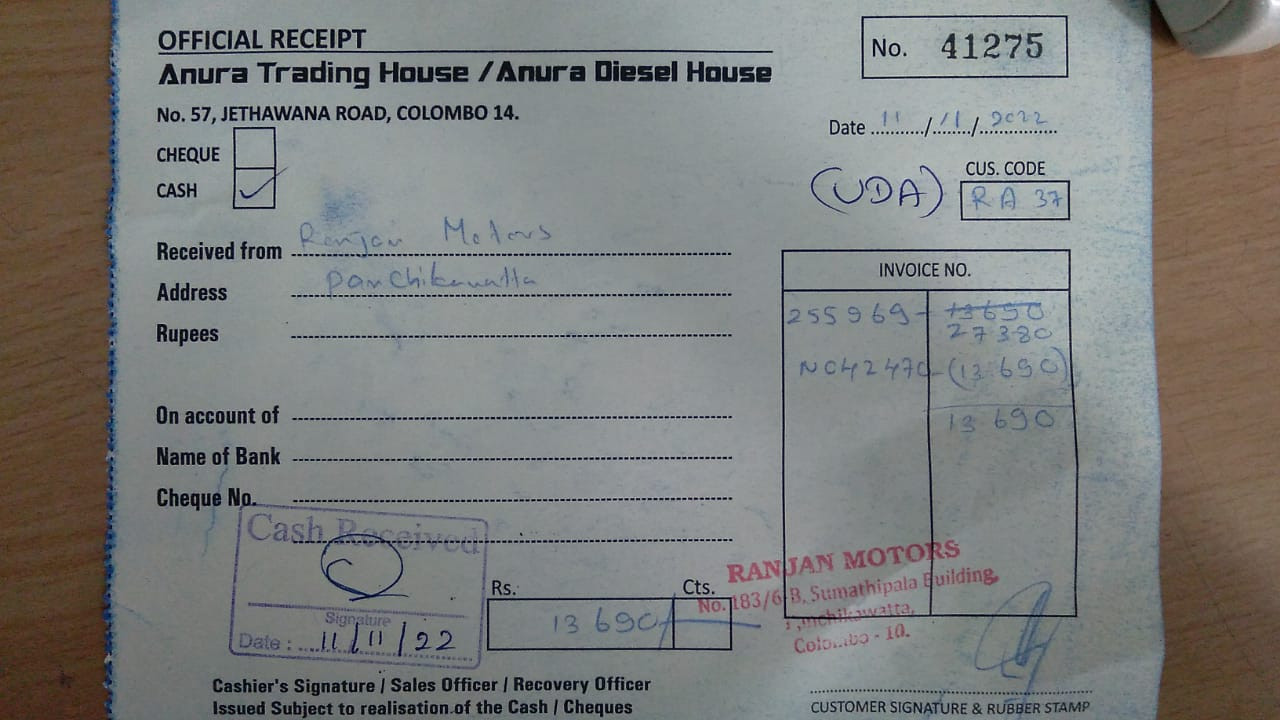 OFFICIAL RECEIPT
Anura Trading House / Anura Diesel House
No. 57, JETHAWANA ROAD, COLOMBO 14.
No. 41275
Date 11 / 11 / 2022
CHEQUE
CASH ✓
(UDA)
CUS. CODE
RA 37
Received from Ranjan Motors
Address Panchikawatta
Rupees
On account of
Name of Bank
Cheque No.
INVOICE NO.
255969 - 13690
27380
NC42470 - (13 690)
13 690
Cash Received
Signature
Date : 11/11/22
Rs. Cts.
13 690/
RANJAN MOTORS
No. 183/6 B, Sumathipala Building,
Panchikawatta,
Colombo - 10.
Cashier's Signature / Sales Officer / Recovery Officer
Issued Subject to realisation of the Cash / Cheques
CUSTOMER SIGNATURE & RUBBER STAMP